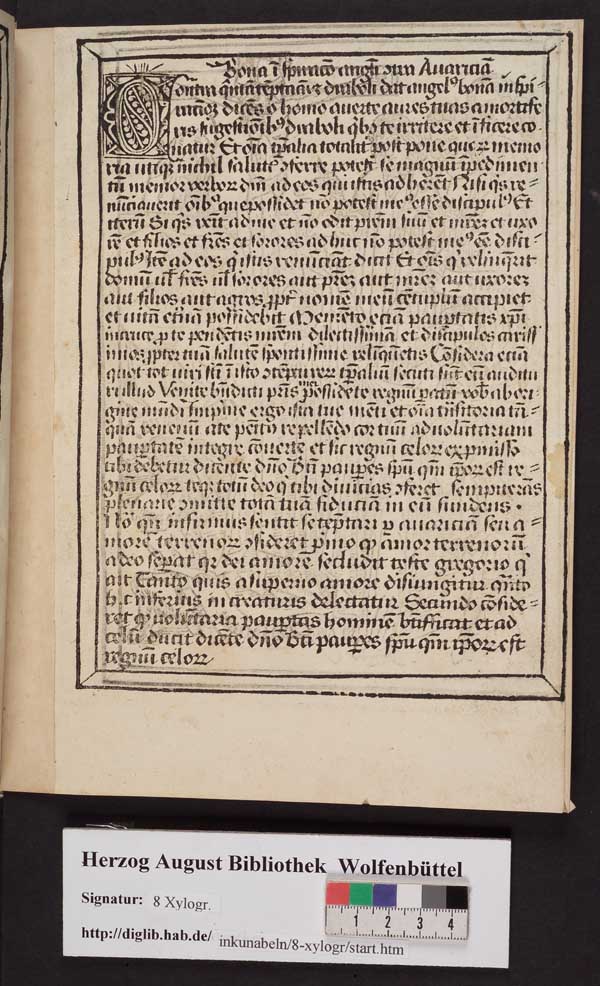 Bona īspiracō angeli cōtra Avariciā
Contra quītā tēptacionē diaboli dat angelꝰ bonā inspi
racionē dicēs o homo averte aures tuas a mortife
ris sugestionibꝰ diaboli qͥbꝰ te irritere et īficere co
natur Et oīa tpalia totalit post pone quorꝝ memo
ria utiqꝫ nichil salutꝭ ꝯferre potest se magnū īpedimen
tū memor verborꝝ dnī ad eos qui istis adherent Nisi qͥs re=
nūciaverit oībꝰ que possidet nō potest meꝰ esse discipulꝰ Et
iterū Si qͥs venit ad me et nō odit prēm suū et mrēm et uxo
rē et filios et frēs et sorores adhuc nō potest meꝰ eē disci=
pulꝰ Itē ad eos qͥ istis renūciant dicit Et oīs qͥ relinqͥrit
domū ul frēs ul sorores aut prēꝫ aut mrēꝫ aut uxoreꝫ
aut filios aut agros ꝓpt nomē meū cētuplum accipiet
et vitā eternā possidebit Memēto eciā paupertatis xpī
in cruce ꝓ te pendētis mrēm dilectissimā et discipulos cariss
imos ꝓpter tuā salutē spontissime relinquētis Considera eciā
quot tot viri scī ī isto ꝯtēptu rerꝝ tpaliū secuti sūt eū auditu
ri illud Venite bn̄dicti prīs mei possidete regnū paratū vobis ab ori
gine mūdi īmprime ergo ista tue menti et oīa trāsitoria tā=
quā venenū a te penitꝰ repellēdo cor tuū ad voluntariam
paupertatē integre cōverte et sic regnū celorꝝ ex ꝓmisso
tibi debetur dicente dnō Bt̄i pauperes spū qm̄ ipsorꝝ est re=
gnū celorꝝ teqꝫ totū deo qͥ tibi divicias ꝯferet sempiternas
plenarie ꝯmitte totā tuā fiduciā in eū fundens
Nō qn̄ infirmus sentit se tēptari ꝑ avariciā seu a=
morē terrenorꝝ ꝯsideret primo qꝫ amor terrenorū
a deo separat qr dei amorē secludit teste gregorio qͥ
ait Tanto quis a superno amore disiungitur quāto
hic inferius in creaturis delectatur Secundo cōside=
ret qꝫ volūtaria paupertas hominē btīficat et ad
celū ducit dicēte dnō Bt̄i pauperes spū qm̄ ipsorꝝ est
regnū celorꝝ
Herzog August Bibliothek Wolfenbüttel
Signatur: 8 Xylogr.
http://diglib.hab.de/ inkunabeln/8-xylogr/start.htm
1 2 3 4